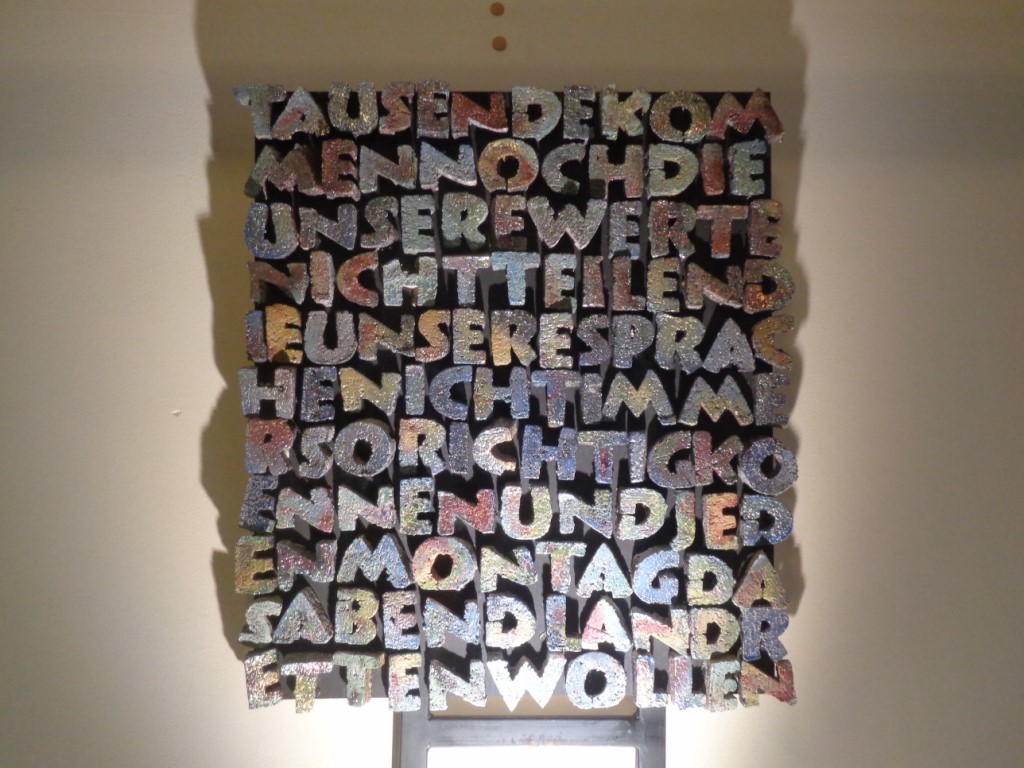 TAUSENDEKOM
MENNOCHDIE
UNSEREWERTE
NICHTTEILEND
IEUNSERESPRAC
HENICHTIMME
RSORICHTIGKO
ENNENUNDJED
ENMONTAGDA
SABENDLANDR
ETTENWOLLEN